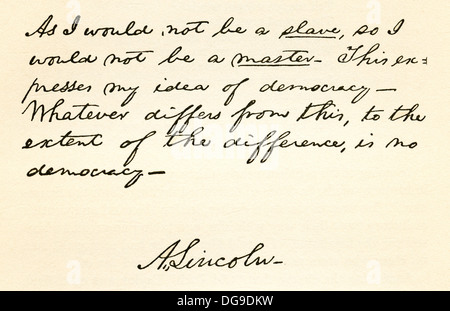 As I would not be a slave, so I
would not be a master - This ex=
presses my idea of democracy -
Whatever differs from this, to the
extent of the difference, is no
democracy -
A. Lincoln -
alamy
Image ID: DG9DKW
www.alamy.com